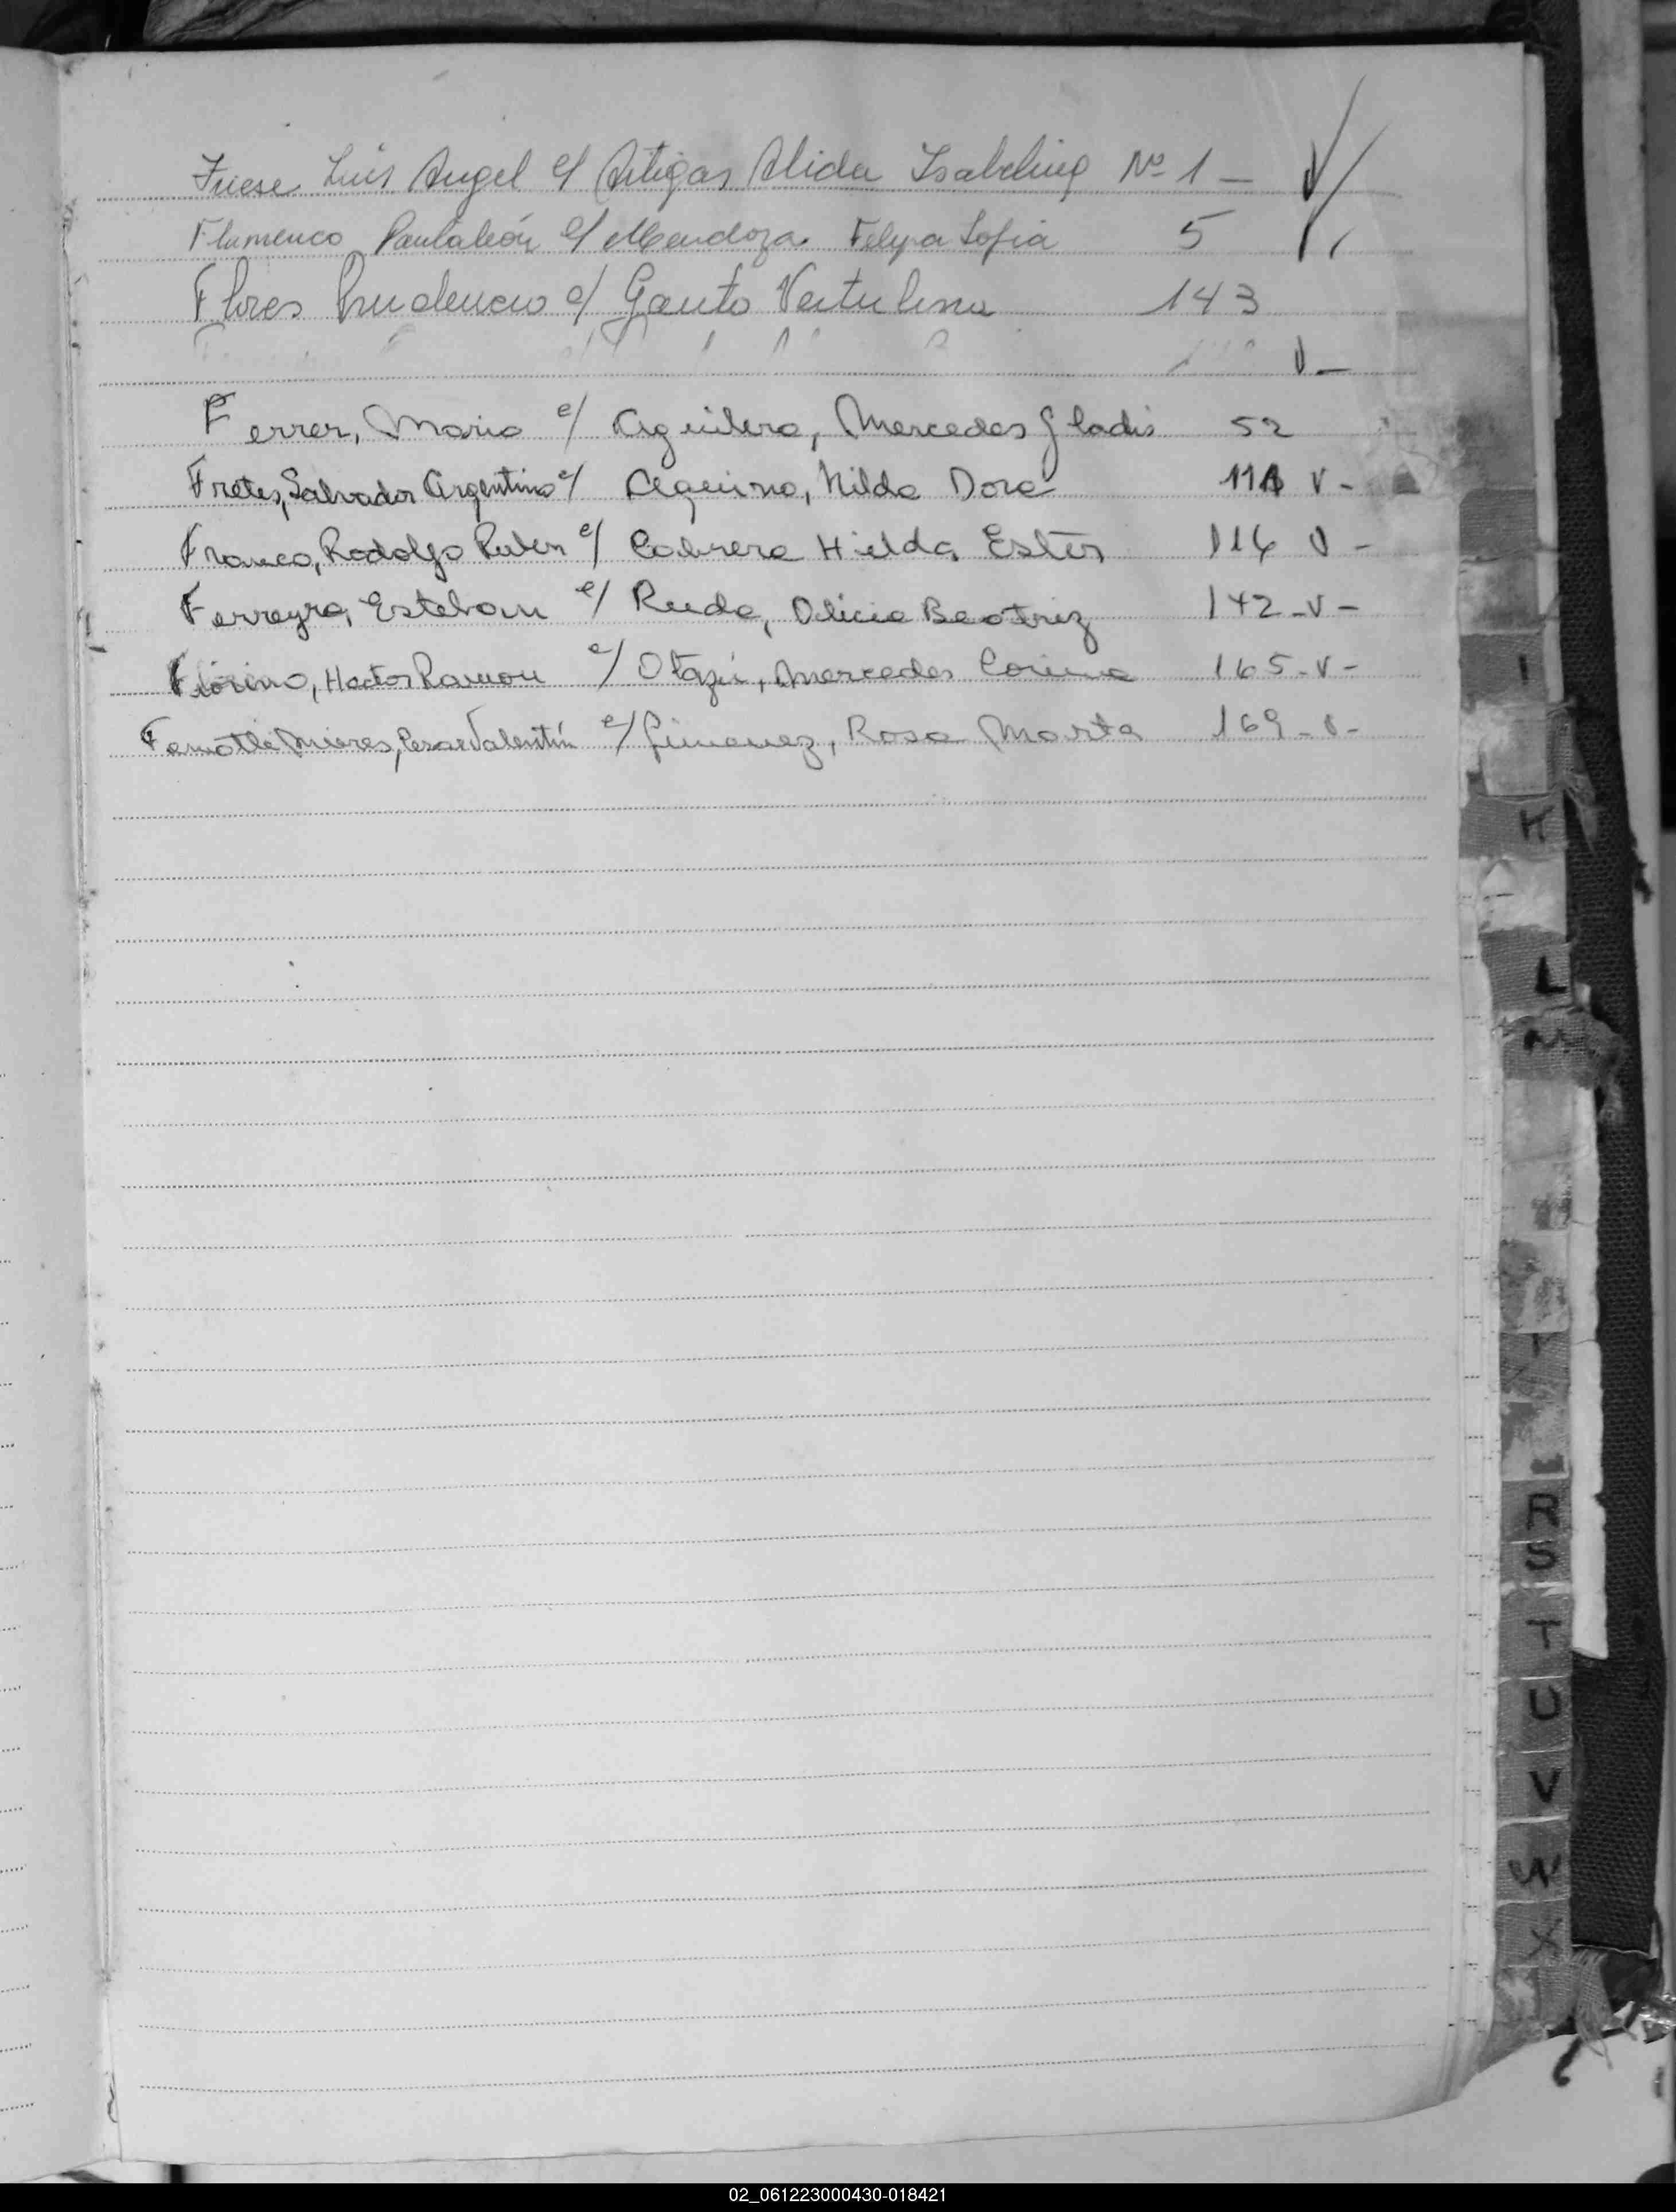 Luis Angel c/ Artigas Alida Isabelina Nº 1 -
Flamenco Pantaleón c/ Mendoza Felipa Sofia 5
Flores Prudencio c/ Gauto Vertulina 143
V-
Ferrer, Mario c/ Aguilera, Mercedes Gladis 52
Fretes, Salvador Argentino c/ Aquino, Nilda Dora V-
Franco, Rodolfo Ruben c/ Cabrera Hilda Ester 116 V-
Ferreyra, Esteban c/ Rueda, Beatriz 142-V-
Hector Ramon c/ Otazú, Mercedes Corina 165-V-
Cesar Valentín c/ Gimenez, Rosa Marta 169-V-
I
K
L
M
R
S
T
U
V
W
X
02_061223000430-018421